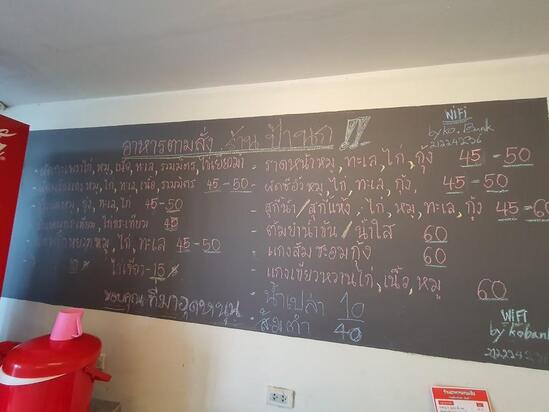 อาหารตามสั่ง ร้าน ป้านุช
WiFi
by ko. Bank
212224236
หมู, เนื้อ, ทะเล, รวมมิตร, ไข่เยี่ยวม้า
หมู, ไก่, ทะเล, เนื้อ, รวมมิตร 45-50
หมู, กุ้ง, ทะเล, ไก่ 45-50
หมูกระเทียม, ไก่กระเทียม 45
หมู, ไก่, ทะเล 45-50
10 ไข่เจียว-15
ขอบคุณ ที่มาอุดหนุน
- ราดหน้าหมู, ทะเล, ไก่, กุ้ง 45-50
- ผัดซีอิ๊วหมู, ไก่, ทะเล, กุ้ง, 45-50
- สุกี้น้ำ / สุกี้แห้ง, ไก่, หมู, ทะเล, กุ้ง 45-60
- ต้มยำน้ำข้น / น้ำใส 60
- แกงส้มชะอมกุ้ง 60
- แกงเขียวหวานไก่, เนื้อ, หมู 60
- น้ำเปล่า 10
- ส้มตำ 40
WiFi
by kobank